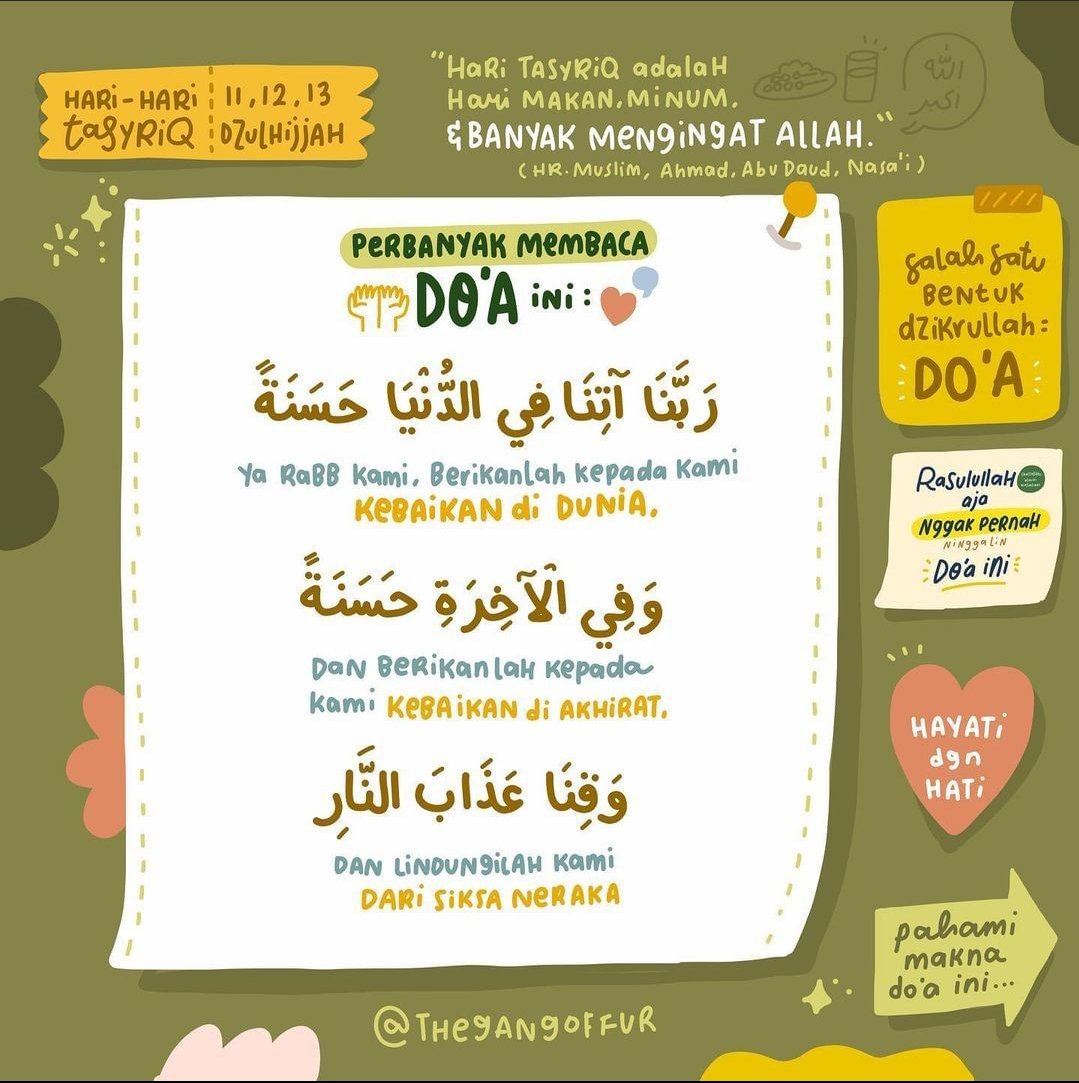 HARI-HARI TASYRIQ
11, 12, 13 DZULHIJJAH
"HARI TASYRIQ adalah
Hari MAKAN, MINUM,
& BANYAK MENGINGAT ALLAH."
(HR. Muslim, Ahmad, Abu Daud, Nasa'i)
الله
اكبر
PERBANYAK MEMBACA
DO'A INI :
رَبَّنَا آتِنَا فِي الدُّنْيَا حَسَنَةً
Ya RABB Kami, Berikanlah kepada Kami
KEBAIKAN di DUNIA.
وَفِي الْآخِرَةِ حَسَنَةً
DAN BERIKANLAH KEPADA
Kami KEBAIKAN di AKHIRAT.
وَقِنَا عَذَابَ النَّارِ
DAN LINDUNGILAH KAMI
DARI SIKSA NERAKA
salah satu
BENTUK
dzikrullah:
DO'A
RASULULLAH
aja
NGGAK PERNAH
NINGGALIN
DO'A INI
HAYATI
dgn
HATI
pahami
makna
do'a ini...
@THEGANGOFFUR